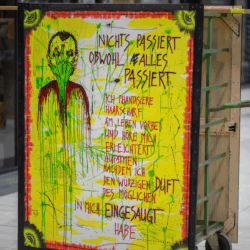 NICHTS PASSIERT
OBWOHL ALLES
PASSIERT.
ICH PHANTASIERE
HAARSCHARF
AM LEBEN VORBEI
UND HÖRE MICH
ERLEICHTERT
AUFATMEN
NACHDEM ICH
DEN WÜRZIGEN DUFT
DES MÖGLICHEN
IN MICH EINGESAUGT
HABE.